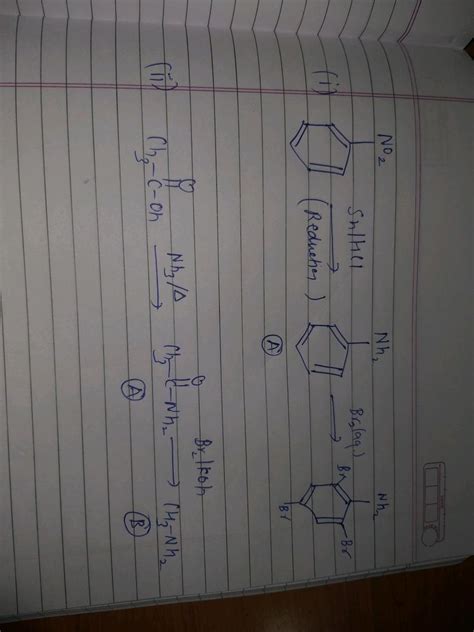 (i)
NO2
Sn/HCl
(Reduction)
Nh2
(A)
Br2(aq)
Nh2
Br
Br
Br
(ii)
O
Ch3-C-Oh
Nh3/Δ
O
Ch3-C-Nh2
(A)
Br2/KOh
Ch3-Nh2
(B)